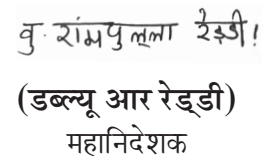 वु. रांमपुल्ला रेड्डी!
(डब्ल्यू आर रेड्डी)
महानिदेशक